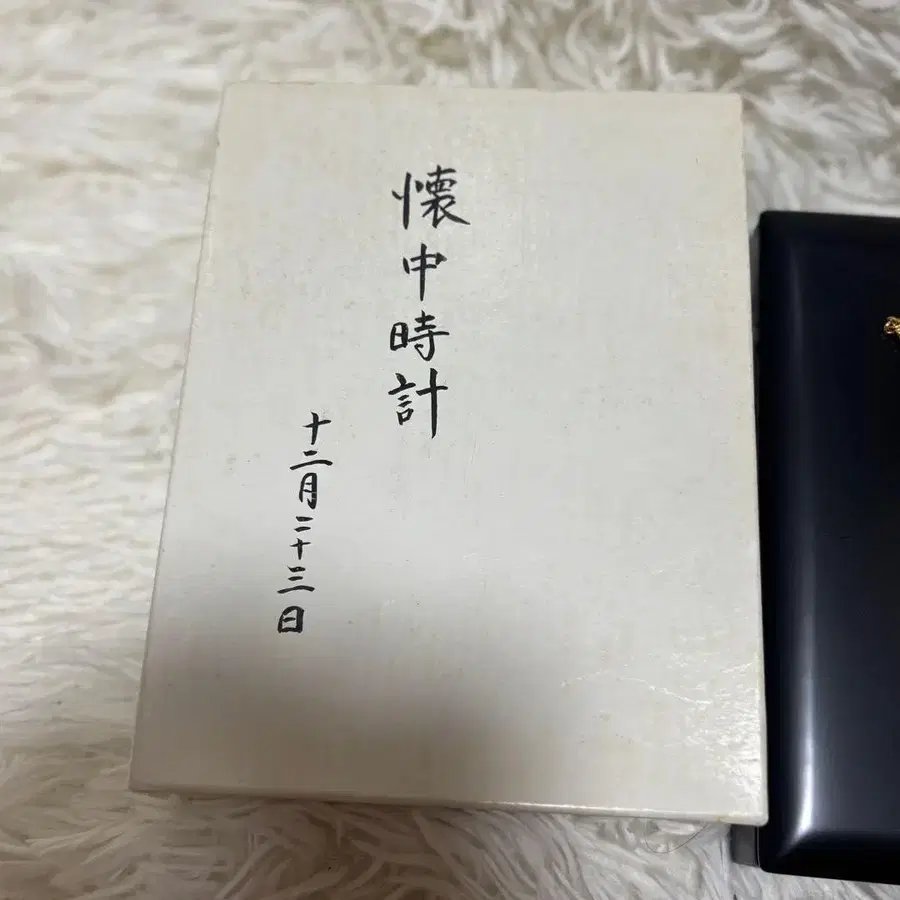 懐中時計
十二月二十三日